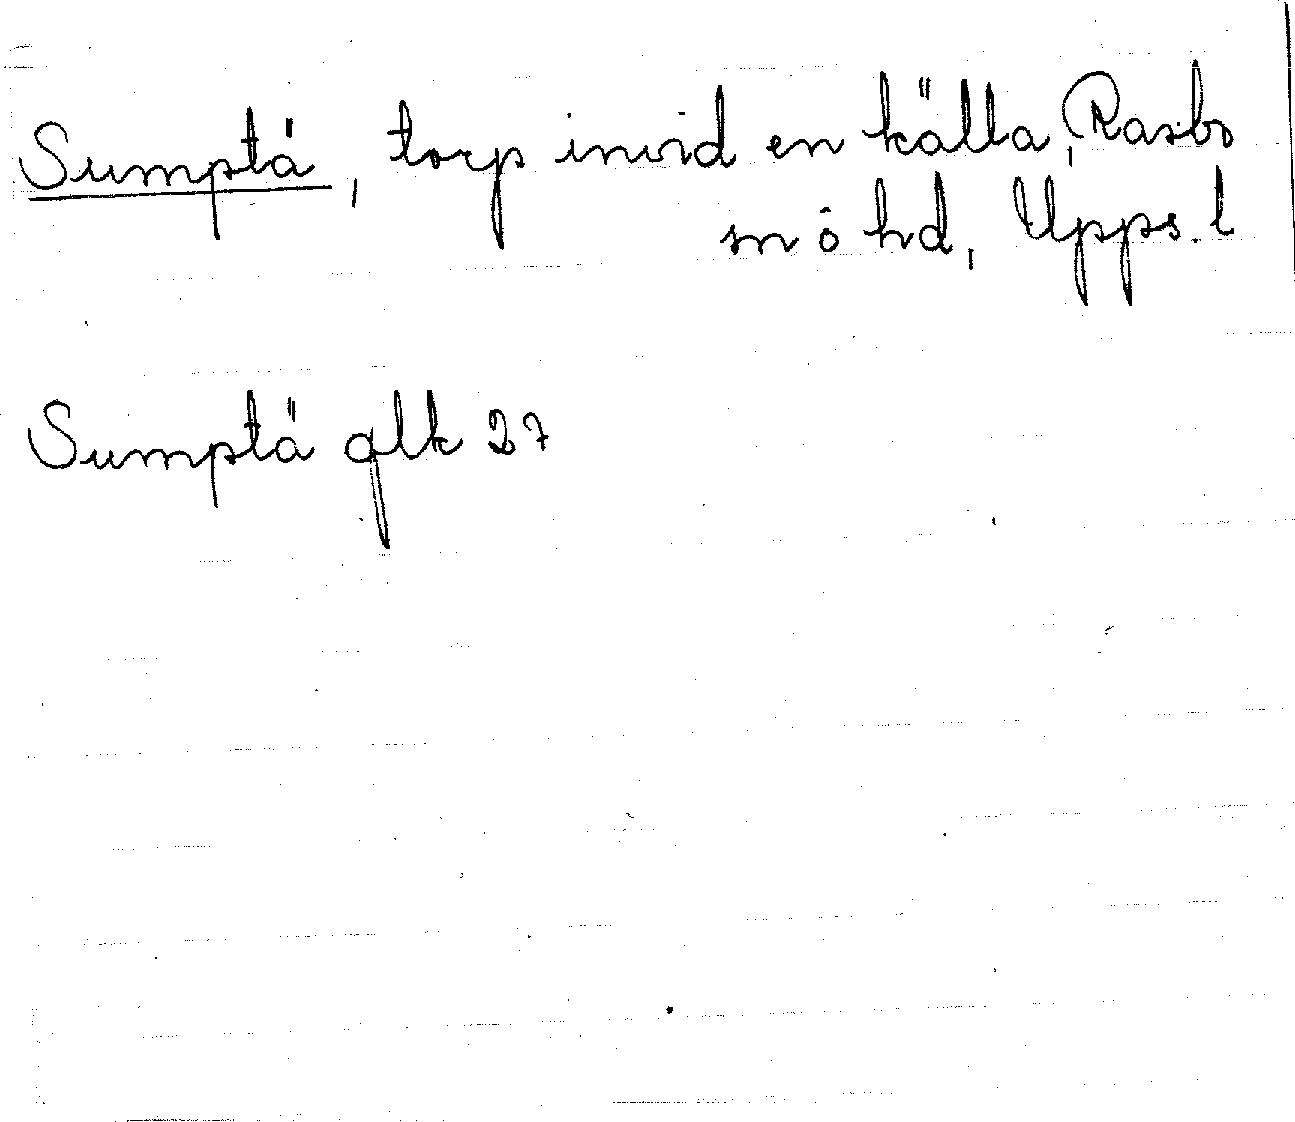 Sumptä, torp invid en källa, Rasbo
sn o hd, Upps. l
Sumptä glk 27